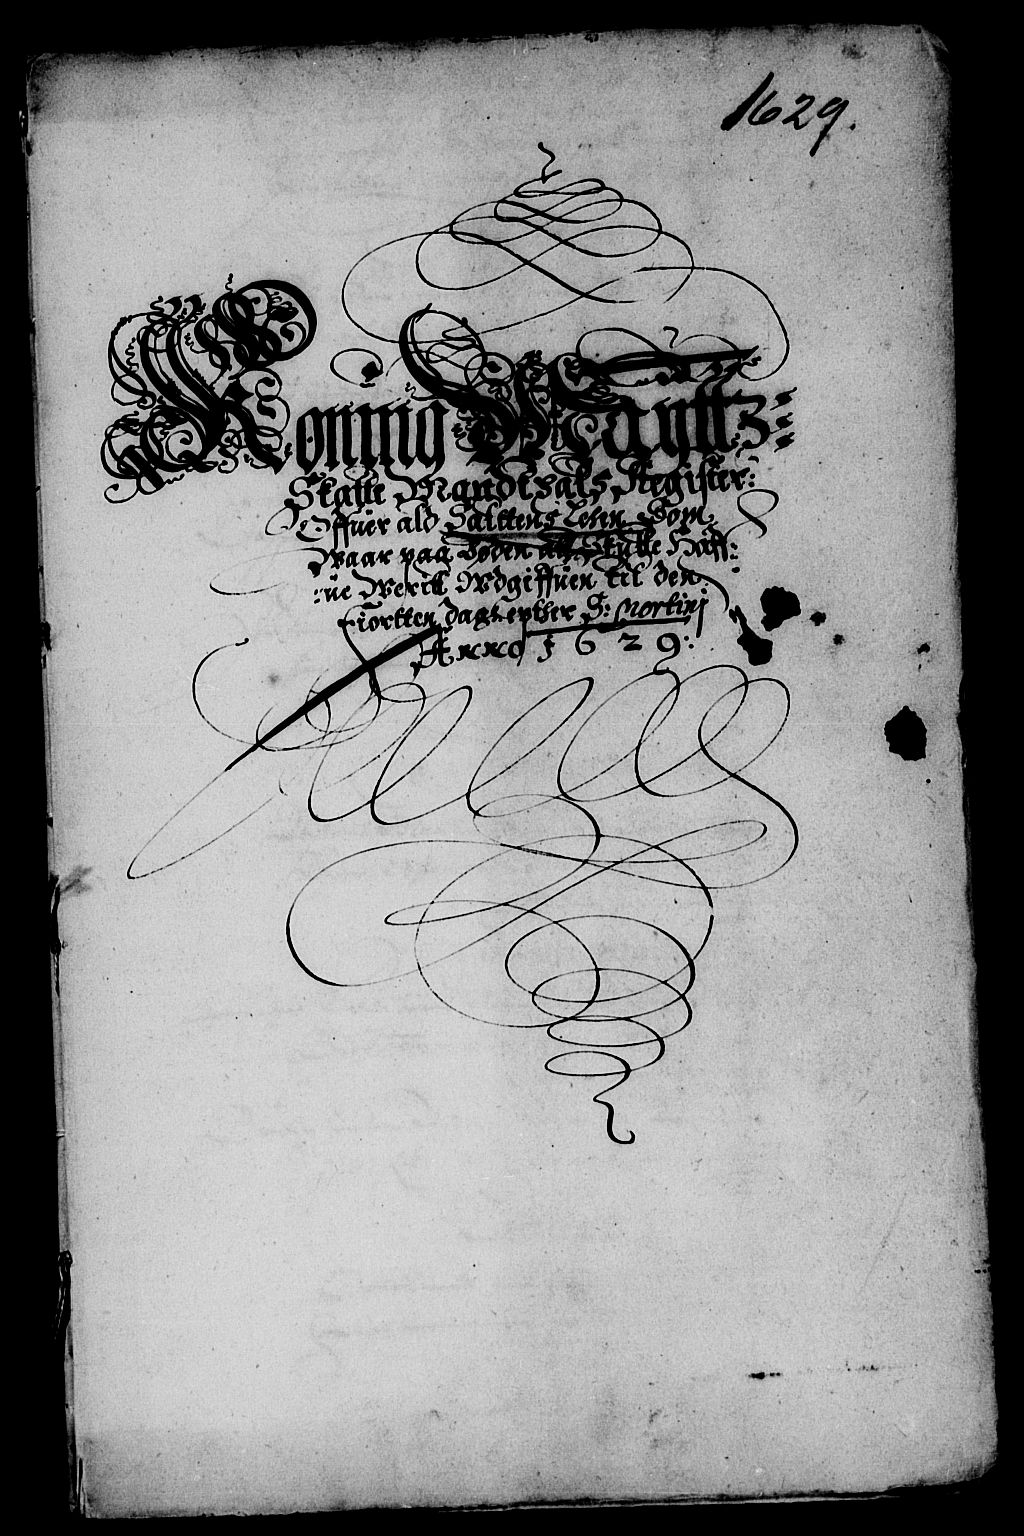 1629.
Koning Maÿttz:
Skatte Mandtals Register:
Offuer ald Salttens Lehn Som
Waar paa Boden att Skulle Haff:
:ue Werit Wdgiffuen til den
Fiortten dag epther S: Mortinj
Anno 1629: